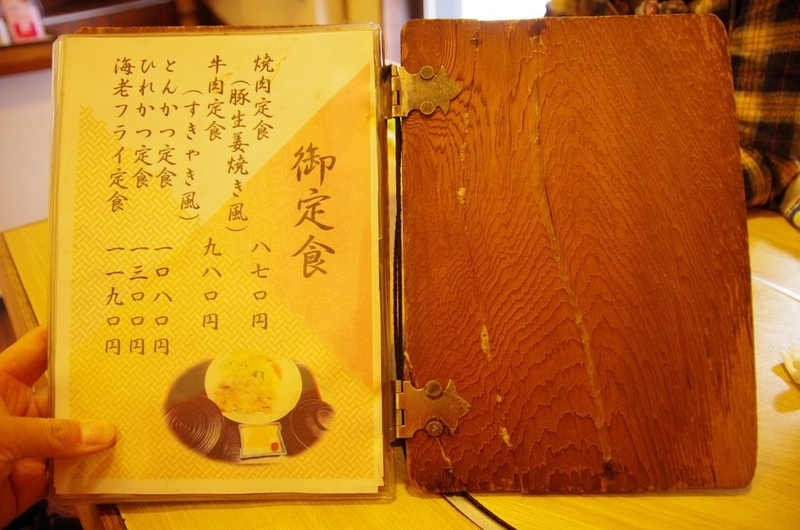 御定食
焼肉定食
(豚生姜焼き風) 八七〇円
牛肉定食
(すきやき風) 九八〇円
とんかつ定食 一〇八〇円
ひれかつ定食 一三〇〇円
海老フライ定食 一一九〇円